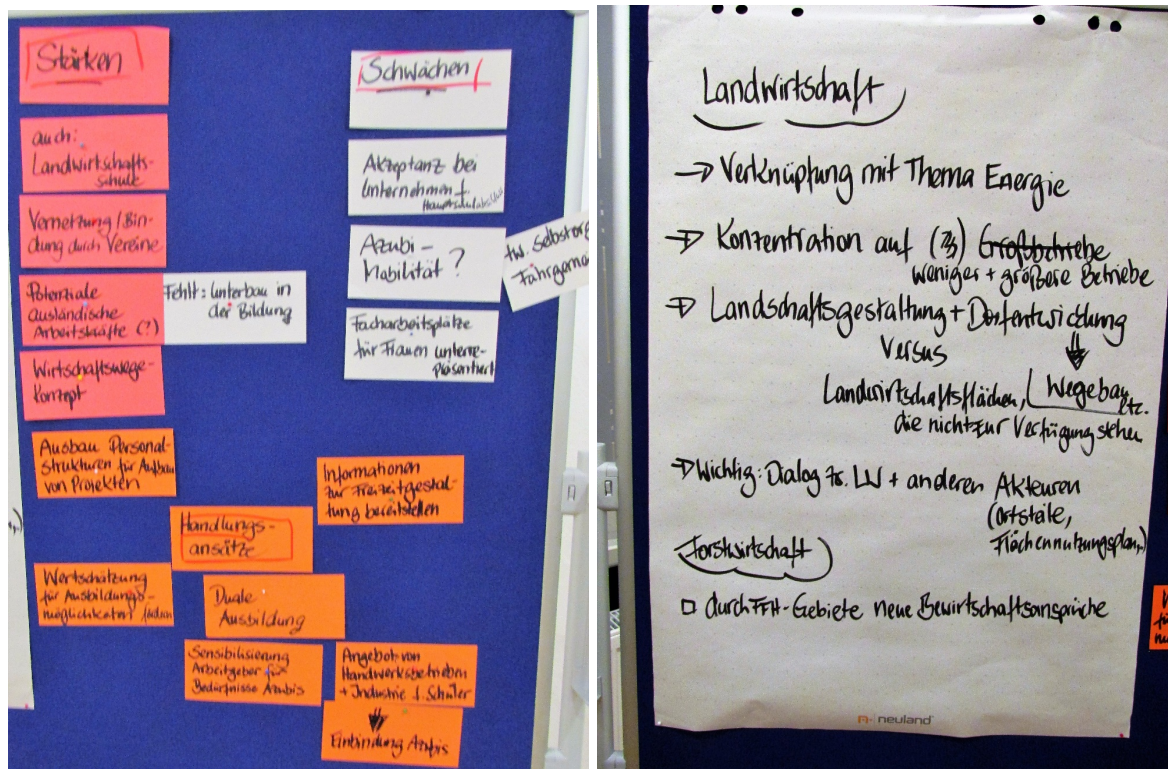 Stärken
auch:
Landwirtschafts-
schule
Vernetzung/Bin-
dung durch Vereine
Potenziale
ausländische
Arbeitskräfte (?)
Fehlt: Unterbau in
der Bildung
Wirtschaftswege-
konzept
Schwächen
Akzeptanz bei
Unternehmen f.
Hauptschulabschluss
Azubi-
Mobilität?
tw. Selbstorg
Fahrgeme
Facharbeitsplätze
für Frauen unterre-
präsentiert
Ausbau Personal-
strukturen für Aufbau
von Projekten
Informationen
zur Freizeitgestal-
tung bereitstellen
Handlungs-
ansätze
Wertschätzung
für Ausbildungs-
möglichkeiten fördern
Duale
Ausbildung
Sensibilisierung
Arbeitgeber für
Bedürfnisse Azubis
Angebot von
Handwerksbetrieben
+ Industrie f. Schüler
Einbindung Azubis
Landwirtschaft
→ Verknüpfung mit Thema Energie
→ Konzentration auf Großbetriebe
weniger + größere Betriebe
→ Landschaftsgestaltung + Dorfentwicklung
versus
Landwirtschaftsflächen, Wegebau etc.
die nicht zur Verfügung stehen
→ Wichtig: Dialog zw. LW + anderen Akteuren
(Ortsteile,
Flächennutzungsplan,..)
Forstwirtschaft
□ durch FFH-Gebiete neue Bewirtschaftsansprüche
neuland